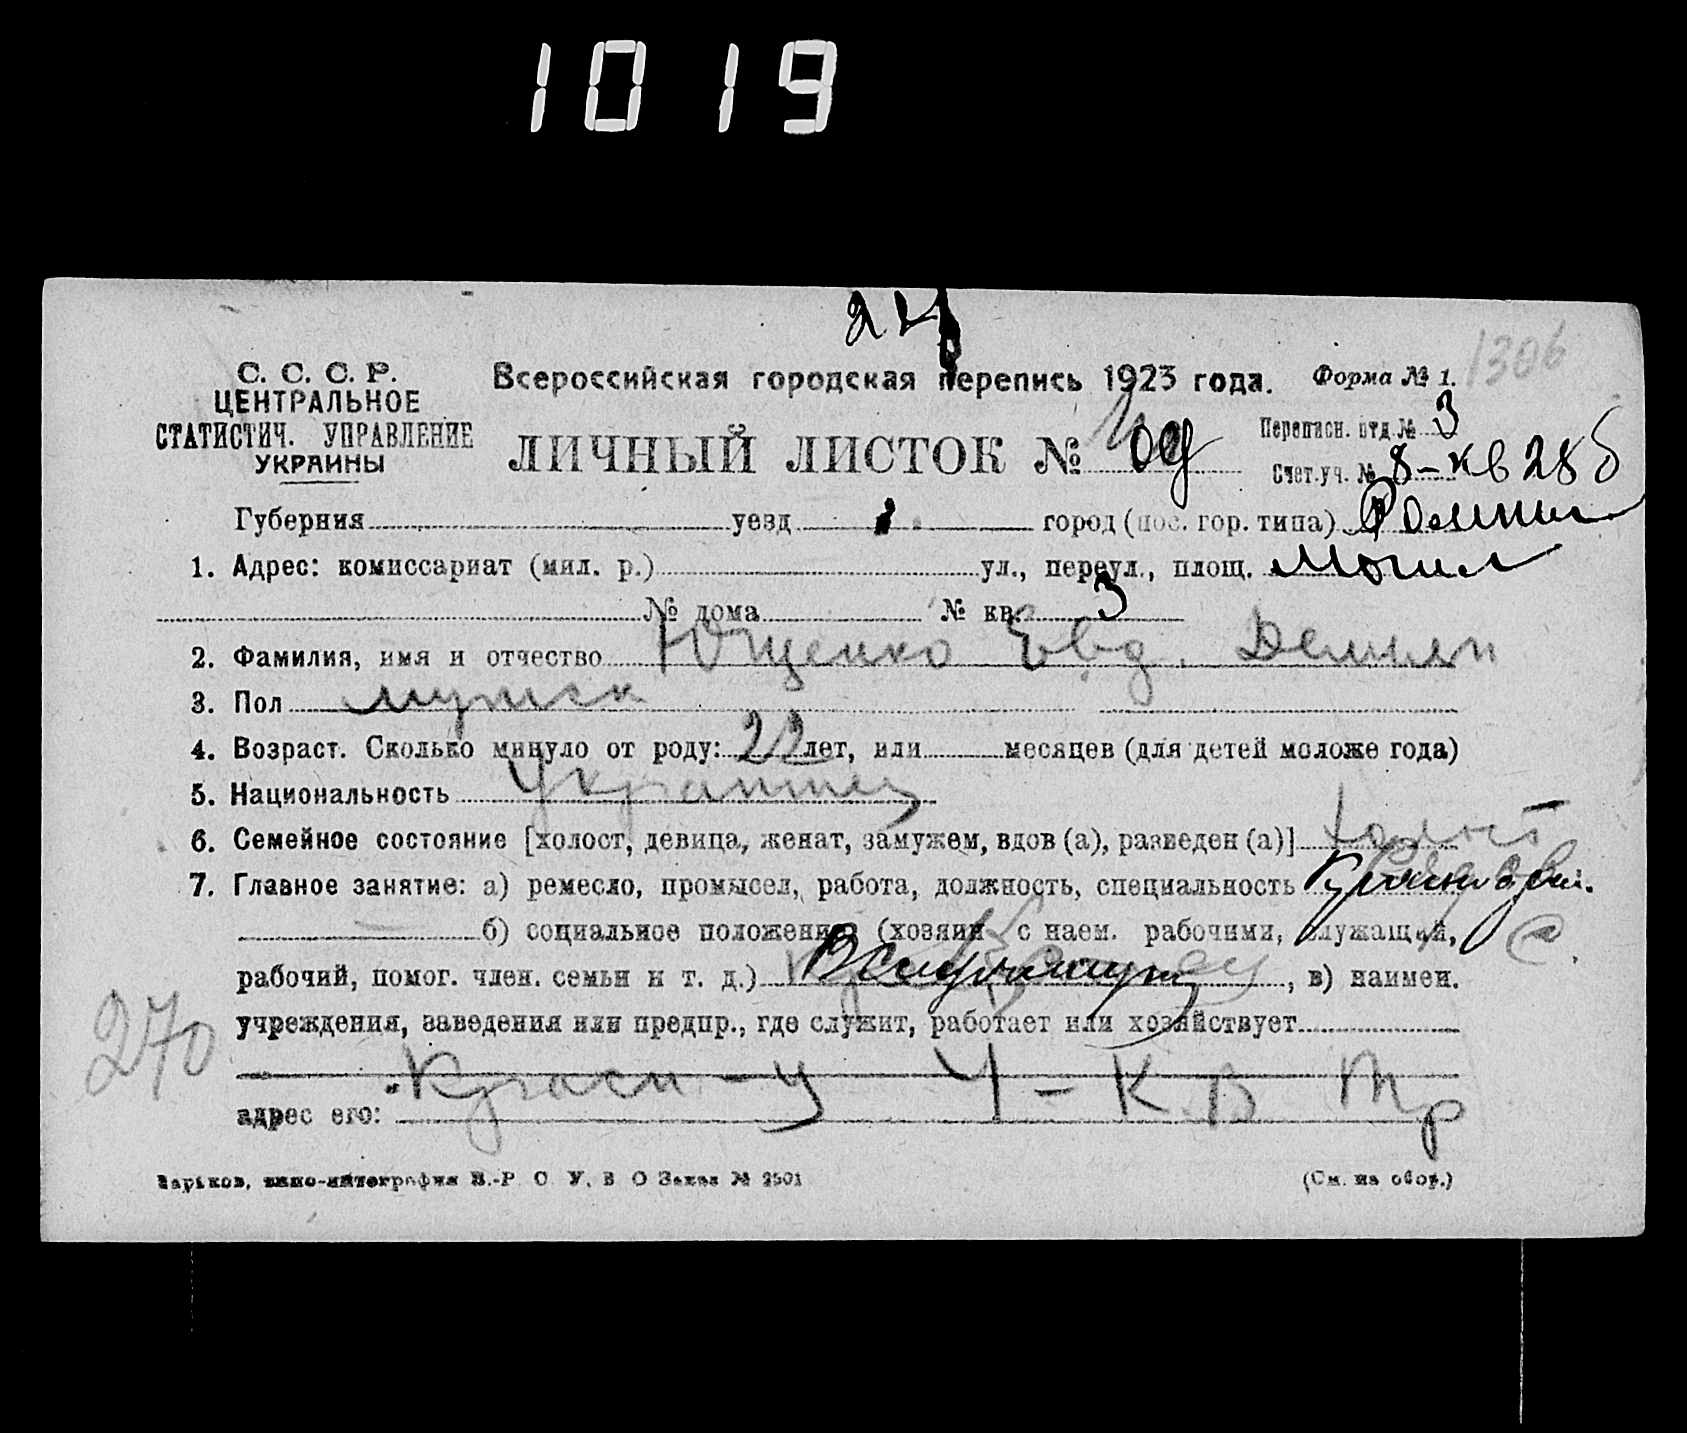 1019
24
С. С. С. Р.
ЦЕНТРАЛЬНОЕ
СТАТИСТИЧ. УПРАВЛЕНИЕ
УКРАИНЫ
Всероссийская городская перепись 1923 года.
Форма № 1.
1306
ЛИЧНЫЙ ЛИСТОК №
Переписн. отд. № 3
Счет.уч. № 8-кв 28б
Губерния уезд город (пос. гор. типа) Ромны
1. Адрес: комиссариат (мил. р.) ул., переул., площ. Могил
№ дома № кв. 3
2. Фамилия, имя и отчество Ющенко Евд. Демиян
3. Пол мужск
4. Возраст. Сколько минуло от роду: 22 лет, или месяцев (для детей моложе года)
5. Национальность Украинец
6. Семейное состояние [холост, девица, женат, замужем, вдов (а), разведен (а)] холост
7. Главное занятие: а) ремесло, промысел, работа, должность, специальность
б) социальное положение (хозяин с наем. рабочими, служащий,
рабочий, помог. член. семьи и т. д.) Служащий, в) наимен.
учреждения, заведения или предпр., где служит, работает или хозяйствует
270
Красн-у Ч-К В Тр
адрес его:
Харьков, типо-литография В.-Р О У. В О Заказ № 2501
(См. на обор.)